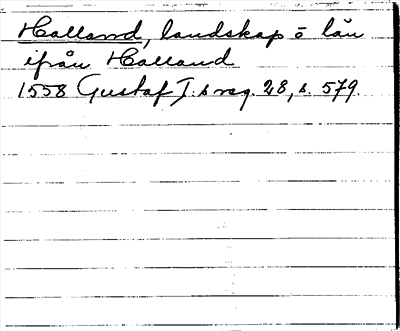 Halland, landskap o län
ifrån Halland
1558 Gustaf I:s reg. 28, s. 579.